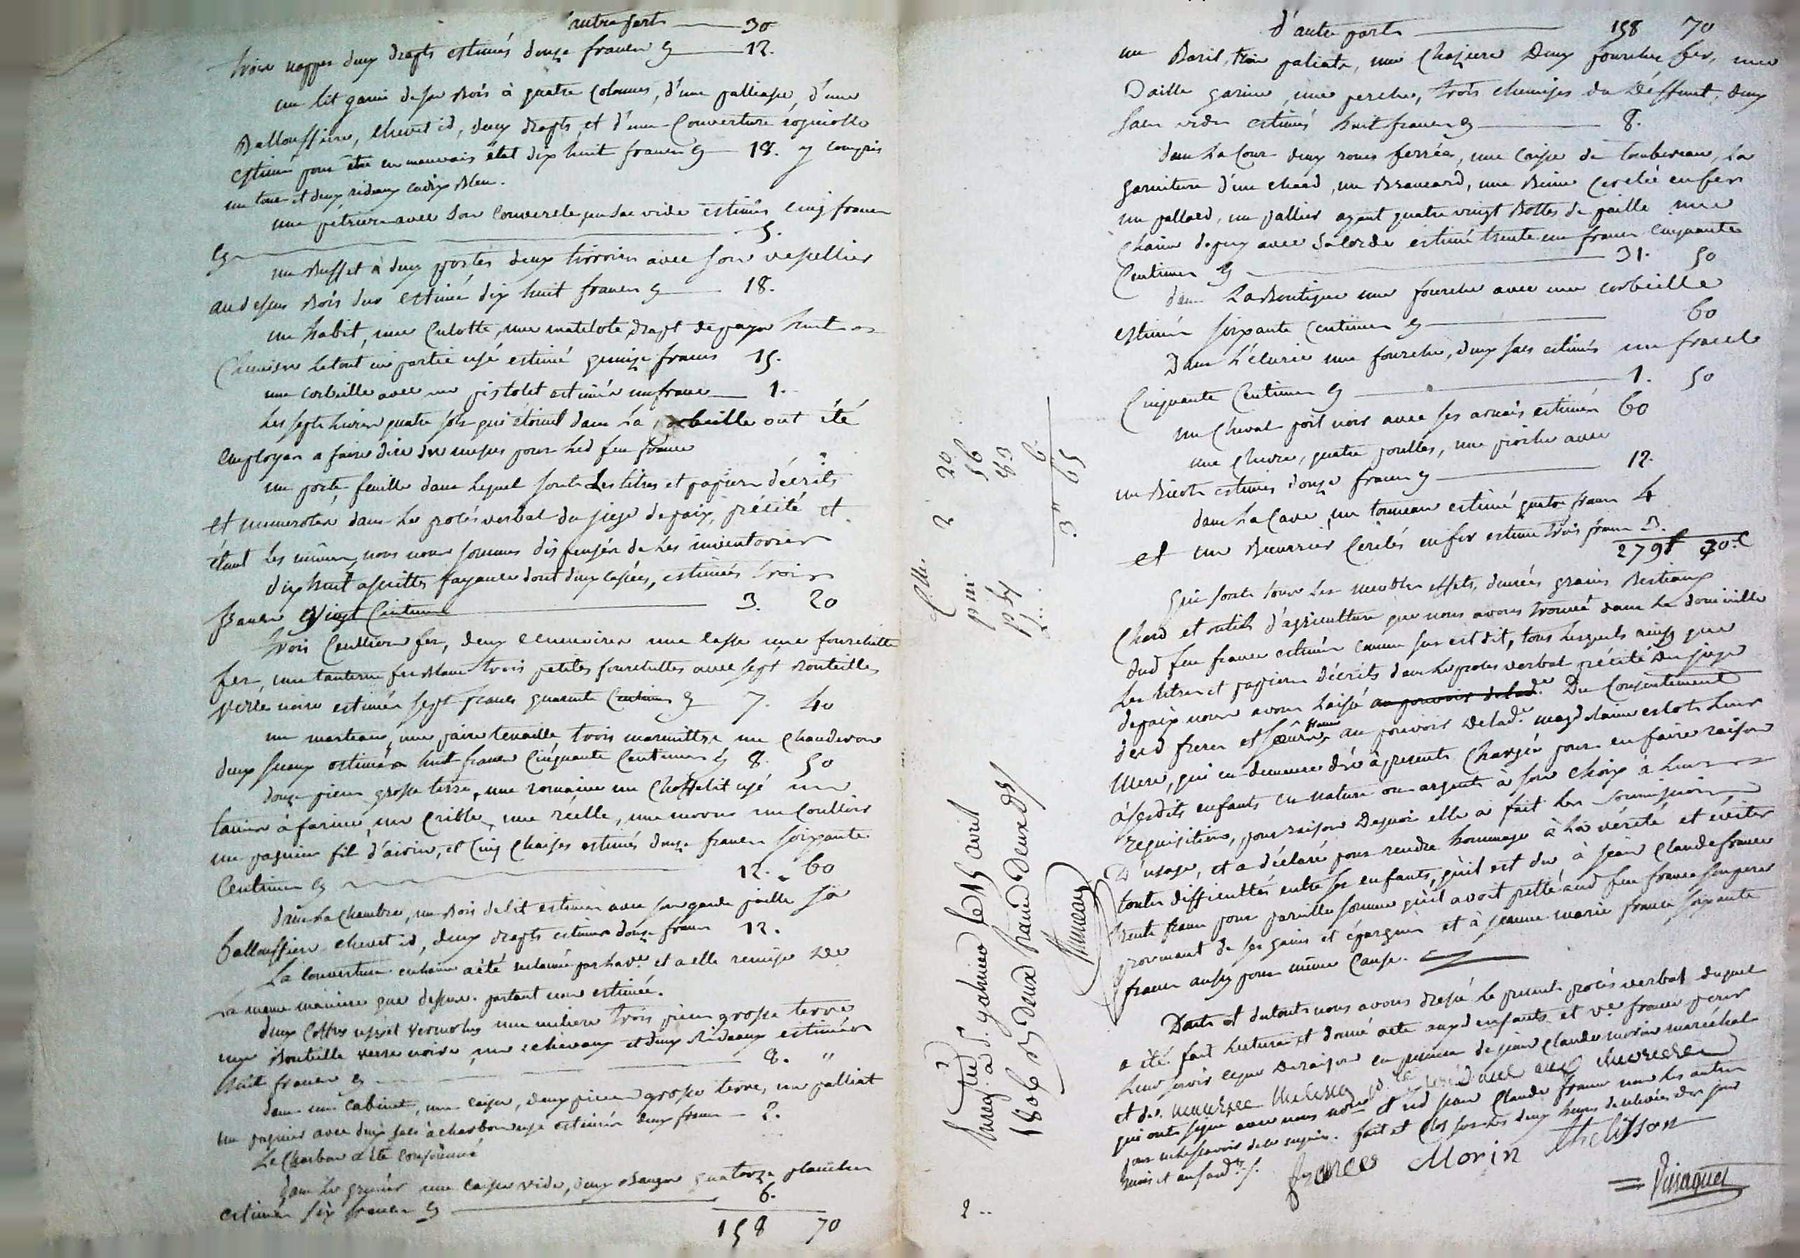 d'autre parts — 30
trois nappes deux drapts estimés douze francs — 12.
un lit garni de son Bois à quatre colonnes, d'une palliasse, d'une
Ballouffière, chevet id, deux drapts et d'une Couverture
estimé pour être en mauvais état dix huit francs — 18. y compris
un tour et deux rideaux cadix Bleu.
une pétrière avec son couvercle un sac vide estimés cinq francs
— 5.
un Buffet à deux portes deux tirroirs avec son vesellier
au dessus Bois dur estimé dix huit francs — 18.
un habit, une Culotte, une matelote, drapt de pays huit
Chemises le tout en partie usé estimé quinze francs 15.
une corbeille avec un pistolet estimés un franc — 1.
Les sept livres quatre sols qui étoient dans la corbeille ont été
employés a faire dire des messes pour led feu france
un porte feuille dans lequel sont Les titres et papiers décrits
et numerotés dans le procès verbal du juge de paix, précité et
étant les mêmes, nous nous sommes dispensés de les inventorier
dix huit assiettes fayance dont deux cassées, estimées trois
francs vingt Centimes — 3. 20
trois Cuillères fer, deux une casse une fourchette
fer, une lanterne fer Blanc trois petites fourchettes avec sept Bouteilles
verre noire estimés sept francs quarante Centimes 7. 40
un marteau, une paire tenaille trois marmittes un chauderon
deux seaux estimés huit francs Cinquante Centimes 8. 50
douze pieces grosse terre, une romaine un Choffelit usé un
tamis à farine, un Crible, une un Coulloir
un pagnier fil d'airin, et Cinq Chaises estimés douze francs soixante
Centimes — 12. 60
dans la Chambre, un Bois de lit estimé avec son garde paille sa
Ballouffière chevet id, deux drapts estimés douze francs 12.
La couverture en laine a été reclamée par lad. ve et a elle remise de
la meme manière que dessus. partant non estimée.
deux Coffres usés et vermolus une trois pieces grosse terre
une Bouteille verre noire, et deux Rideaux estimés
huit francs — 8. "
dans un Cabinet, une caisse, deux pieces grosse terre, un palliat
un pagnier avec deux sacs à charbon usés estimés deux francs — 2.
Le Charbon a été Consommé
dans le grenier une caisse vide, deux quatorze planches
estimés six francs — 6.
158 70
Côte 2 20
p m. 56
p 83
6
3" 65
Enregistré à St galmier le 15 avril
1806 deux francs
2..
d'autre parts — 158 70
un Baril, trois paliats, une Chaziere Deux fourches fer, une
Daille garnie, une perche, trois chemises du Déffunt, deux
sacs vides estimés huit francs — 8.
dans la Cour deux roues ferrées, une Caisse de tombereau, la
garniture d'un chard, un Brancard, une Benne Cerclée en fer
un paillard, un pallier ayant quatre vingt Bottes de paille une
Chaine de puy avec sa corde estimé trente un francs Cinquante
Centimes — 31. 50
dans La Boutique une fourche avec une corbeille
estimés soixante Centimes — 60
Dans L'écurie une fourche, deux sacs estimés un franc
Cinquante Centimes — 1. 50
un Cheval poil noir avec ses arnais estimés 60
une Chèvre, quatre poulles, une pioche avec
un estimés douze francs — 12.
dans La Cave, un tonneau estimé quatre francs 4
et un Beurrier Cerclés en fer estimé trois francs 3.
279f 30.c
Qui sont tous les meubles effets, denrées grains Bestiaux
Chard et outils d'agriculture que nous avons trouvé dans le domicille
dud feu france estimés comme sus est dit, tous lesquels ainsi que
les titres et papiers décrits dans le procès verbal précité Du juge
de paix nous avons laissé au pouvoir de lade. Du Consentement
desd freres et sœurs france au pouvoir de lade. magdelaine leur
Mere, qui en demeure dès à présents Chargée pour en faire raison
à sesdits enfants en nature ou argents à son Choix à leurs
requisitions, pour raison de quoi elle a fait les soumissions
D'usage, et a déclaré pour rendre hommage à la vérité et éviter
toutes difficultés entre ses enfants, qu'il est du à jean Claude france
trente francs pour pareille somme qu'il avoit pretté aud feu france son père
provenant de ses gains et épargnes et à jeanne marie france soixante
francs aussi pour même Cause.
Dont et dutout nous avons dressé le present procès verbal duquel
a été fait lecture et donné acte auxd enfants et ve. france pour
leur servir ce que De raison en présence de jean Claude morin maréchal
et de
qui ont signé avec nous nore. et led jean Claude france non les autres
pour ne le savoir de ce enquis. fait et Clos sur les deux heures de relevée des jour
mois et an susd. s.
france Morin thelisson
Vinaquet